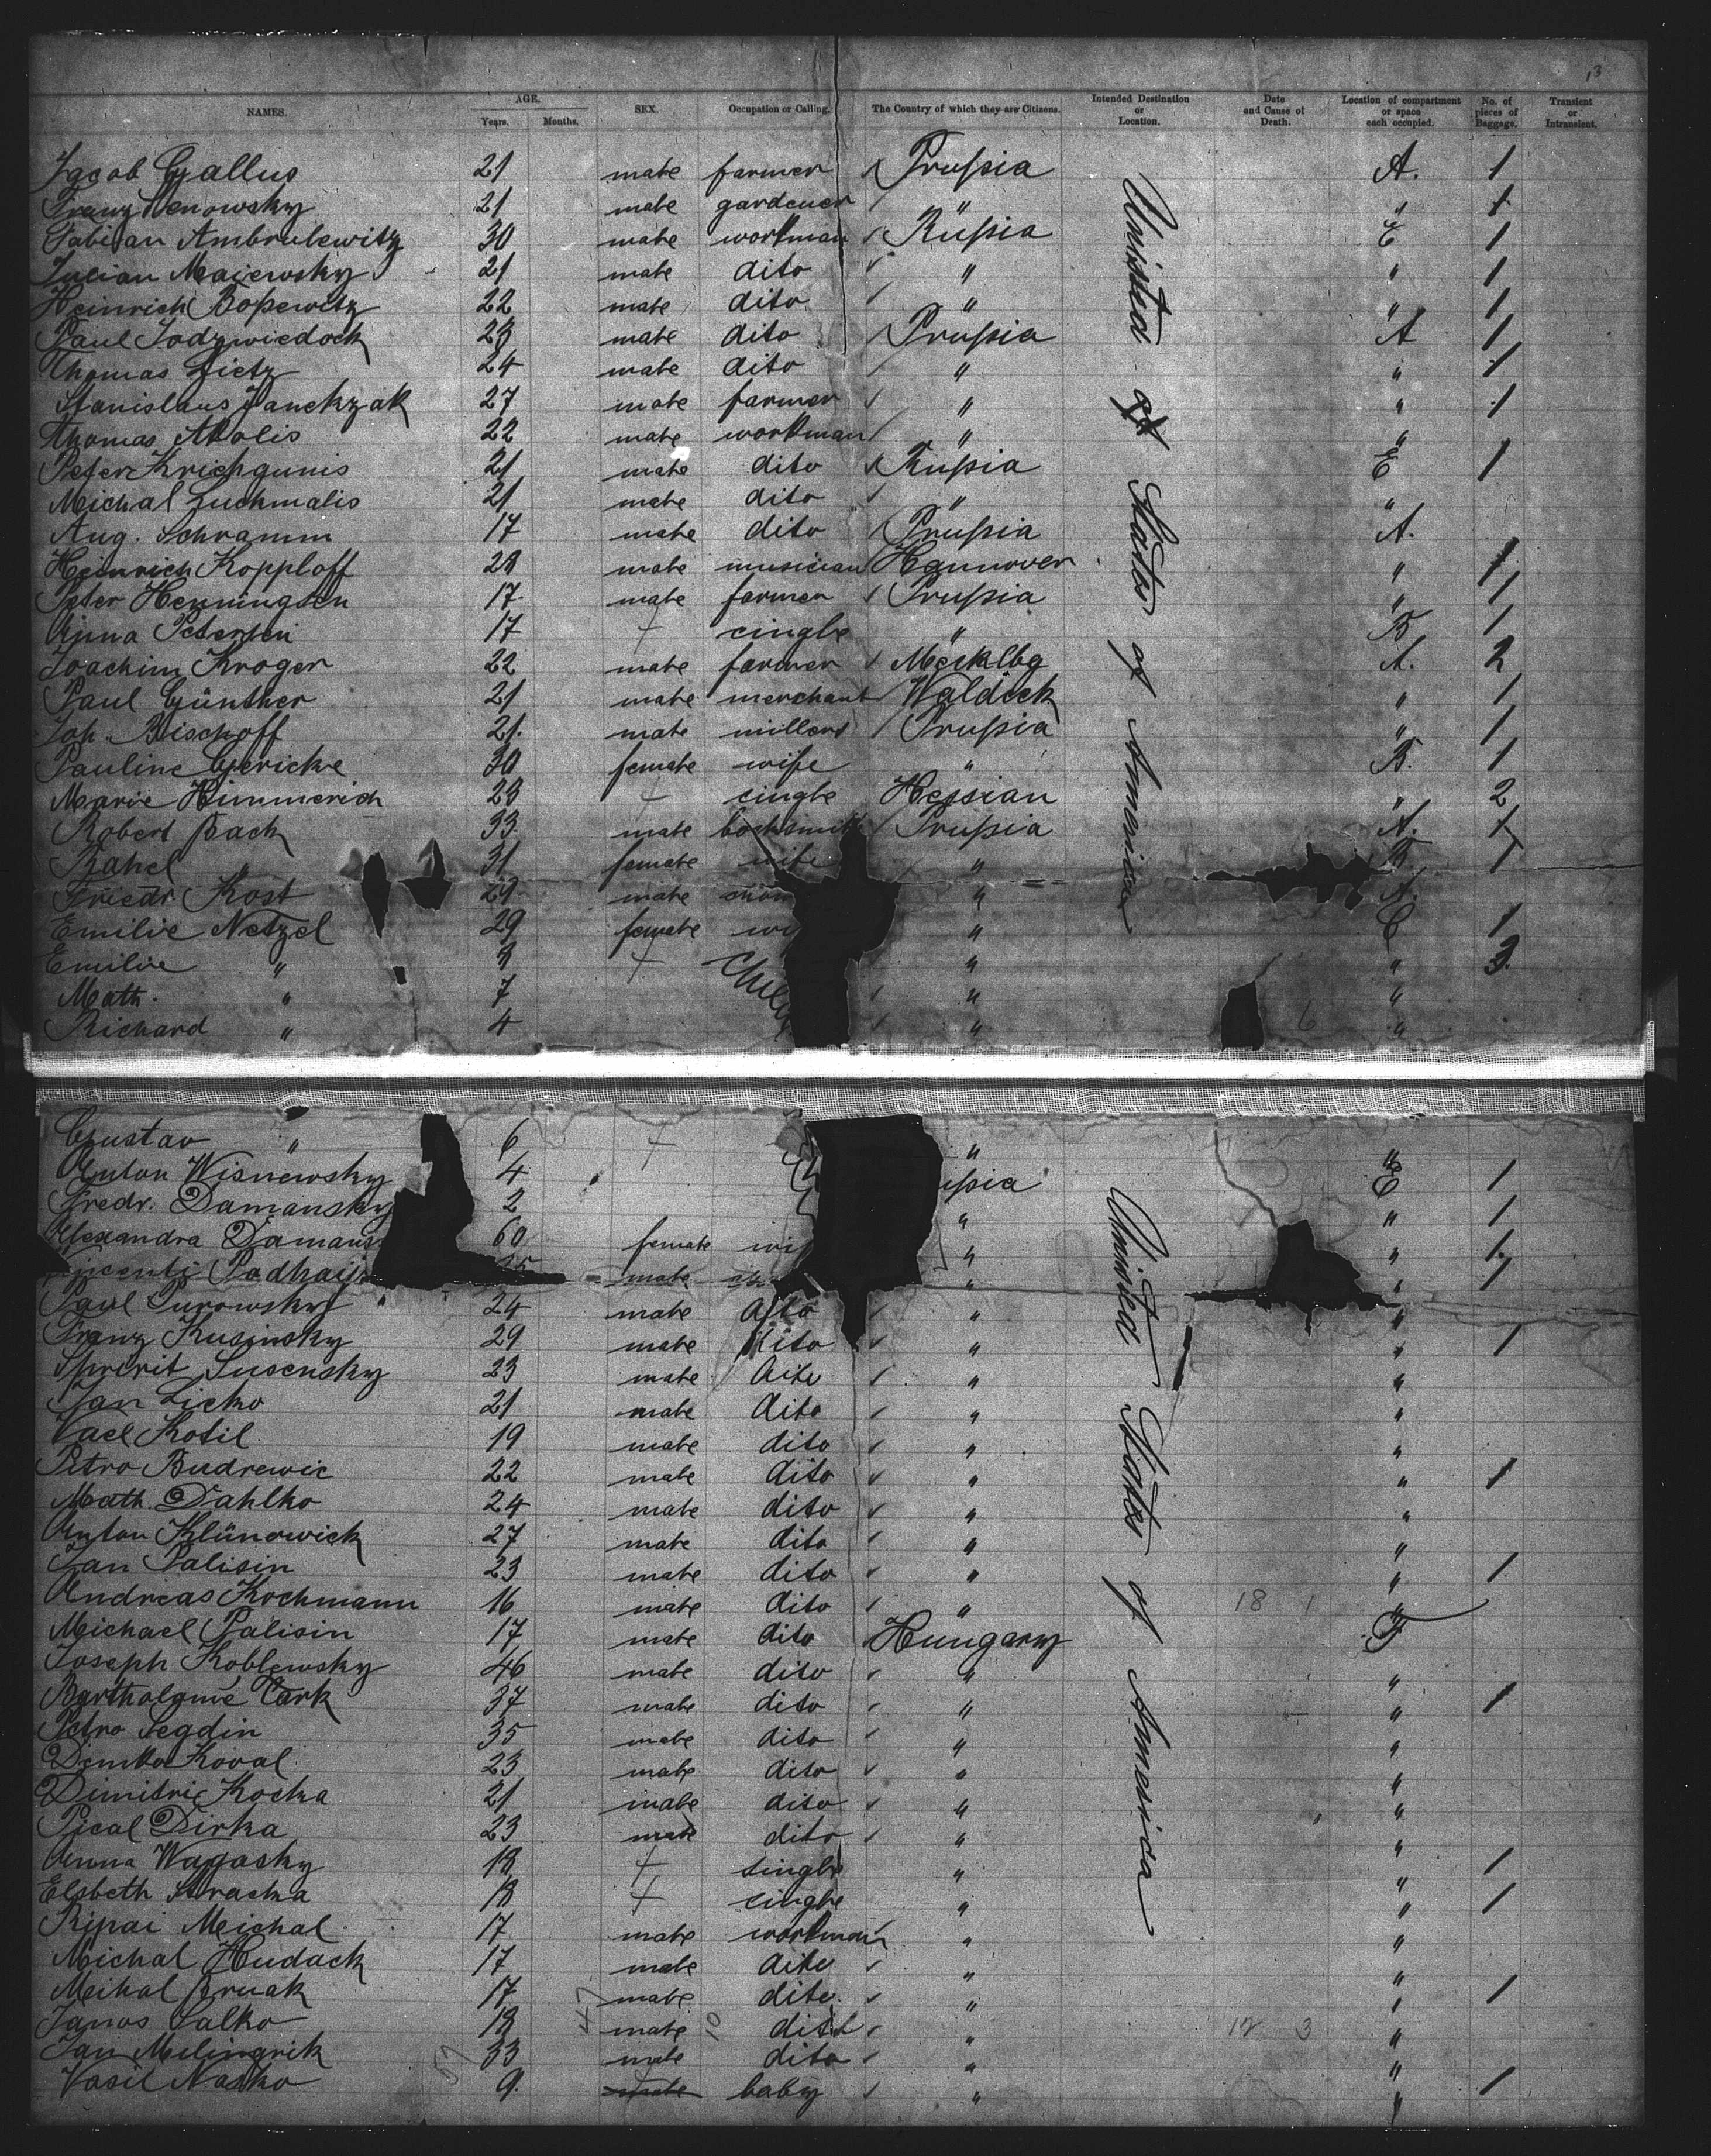 13
NAMES. AGE. Years. Months. SEX. Occupation or Calling. The Country of which they are Citizens. Intended Destination or Location. Date and Cause of Death. Location of compartment or space each occupied. No. of pieces of Baggage. Transient or Intransient.
Jacob Gallus 21 male farmer Prußia A. 1
Franz 21 male gardener " " 1
Fabian Ambrulewitz 30 male workman Rußia E 1
Julian Majewsky 21 male dito " " 1
Heinrich Boßewitz 22 male dito " " 1
Paul 23 male dito Prußia A 1
Thomas Lietz 24 male dito " " 1
Stanislaus Janckzak 27 male farmer " " 1
Thomas 22 male workman " "
Peter Krichgunis 21 male dito Rußia E 1
Michal Zuckmalis 21 male dito " "
Aug. Schramm 17 male dito Prußia A.
Heinrich Kopploff 28 male musician Hannover " 1
Peter Henningsen 17 male farmer Prußia " 1
Anna Petersen 17 cingle " B 1
Joachim Kroger 22 male farmer Mecklbg A. 2
Paul Günther 21 male merchant Waldeck " 1
Joh. Bischoff 21. male millers Prußia " 1
Pauline Gericke 30 female wife " B. 1
Marie Himmerich 23 cingle Hessian " 2
Robert 33. male Prußia A. 1
Rahel " 31 female wife " B. 1
Friedr. Kost 29 male " A.
Emilie Netzel 29 female " C 1
Emilie " " " 3.
Math. " 7 " "
Richard " 4 " 6 "
United States of America
Gustav " 6 " "
Anton Wisnewsky 4 E 1
Fredr. Damansky 2 " " 1
Alexandra 60 female " " 1.
male " " 1
Paul Purowsky 24 male dito " "
Franz Kusinsky 29 male dito " " 1
Susensky 23 male dito " "
Jan Licko 21 male dito " "
Kotil 19 male dito " "
Petro Budrewic 22 male dito " " 1
Math. Dahlko 24 male dito " "
Anton Klünowick 27 male dito " "
Jan Palisin 23 male dito " " 1
Andreas Kochmann 16 male dito " 18 1 "
Michael Palisin 17 male dito Hungary F
Joseph Koblewsky 46 male dito " "
37 male dito " " 1
Petro Segdin 35 male dito " "
Demko Koval 23 male dito " "
Dimitri Kocka 21 male dito " "
Dirka 23 male dito " "
Anna Wagasky 18 single " " 1
Elsbeth Stracka 18 cingle " " 1
Ripai Meichal 17 male workman " "
Michal Hudack 17 male dito " "
Mihal 17 male dito " " 1
Janos Salko 18 47 male 10 dito " 12 3 "
Jan 57 33 male dito " "
Vasil Nasko 9. male baby " " 1
United States of America